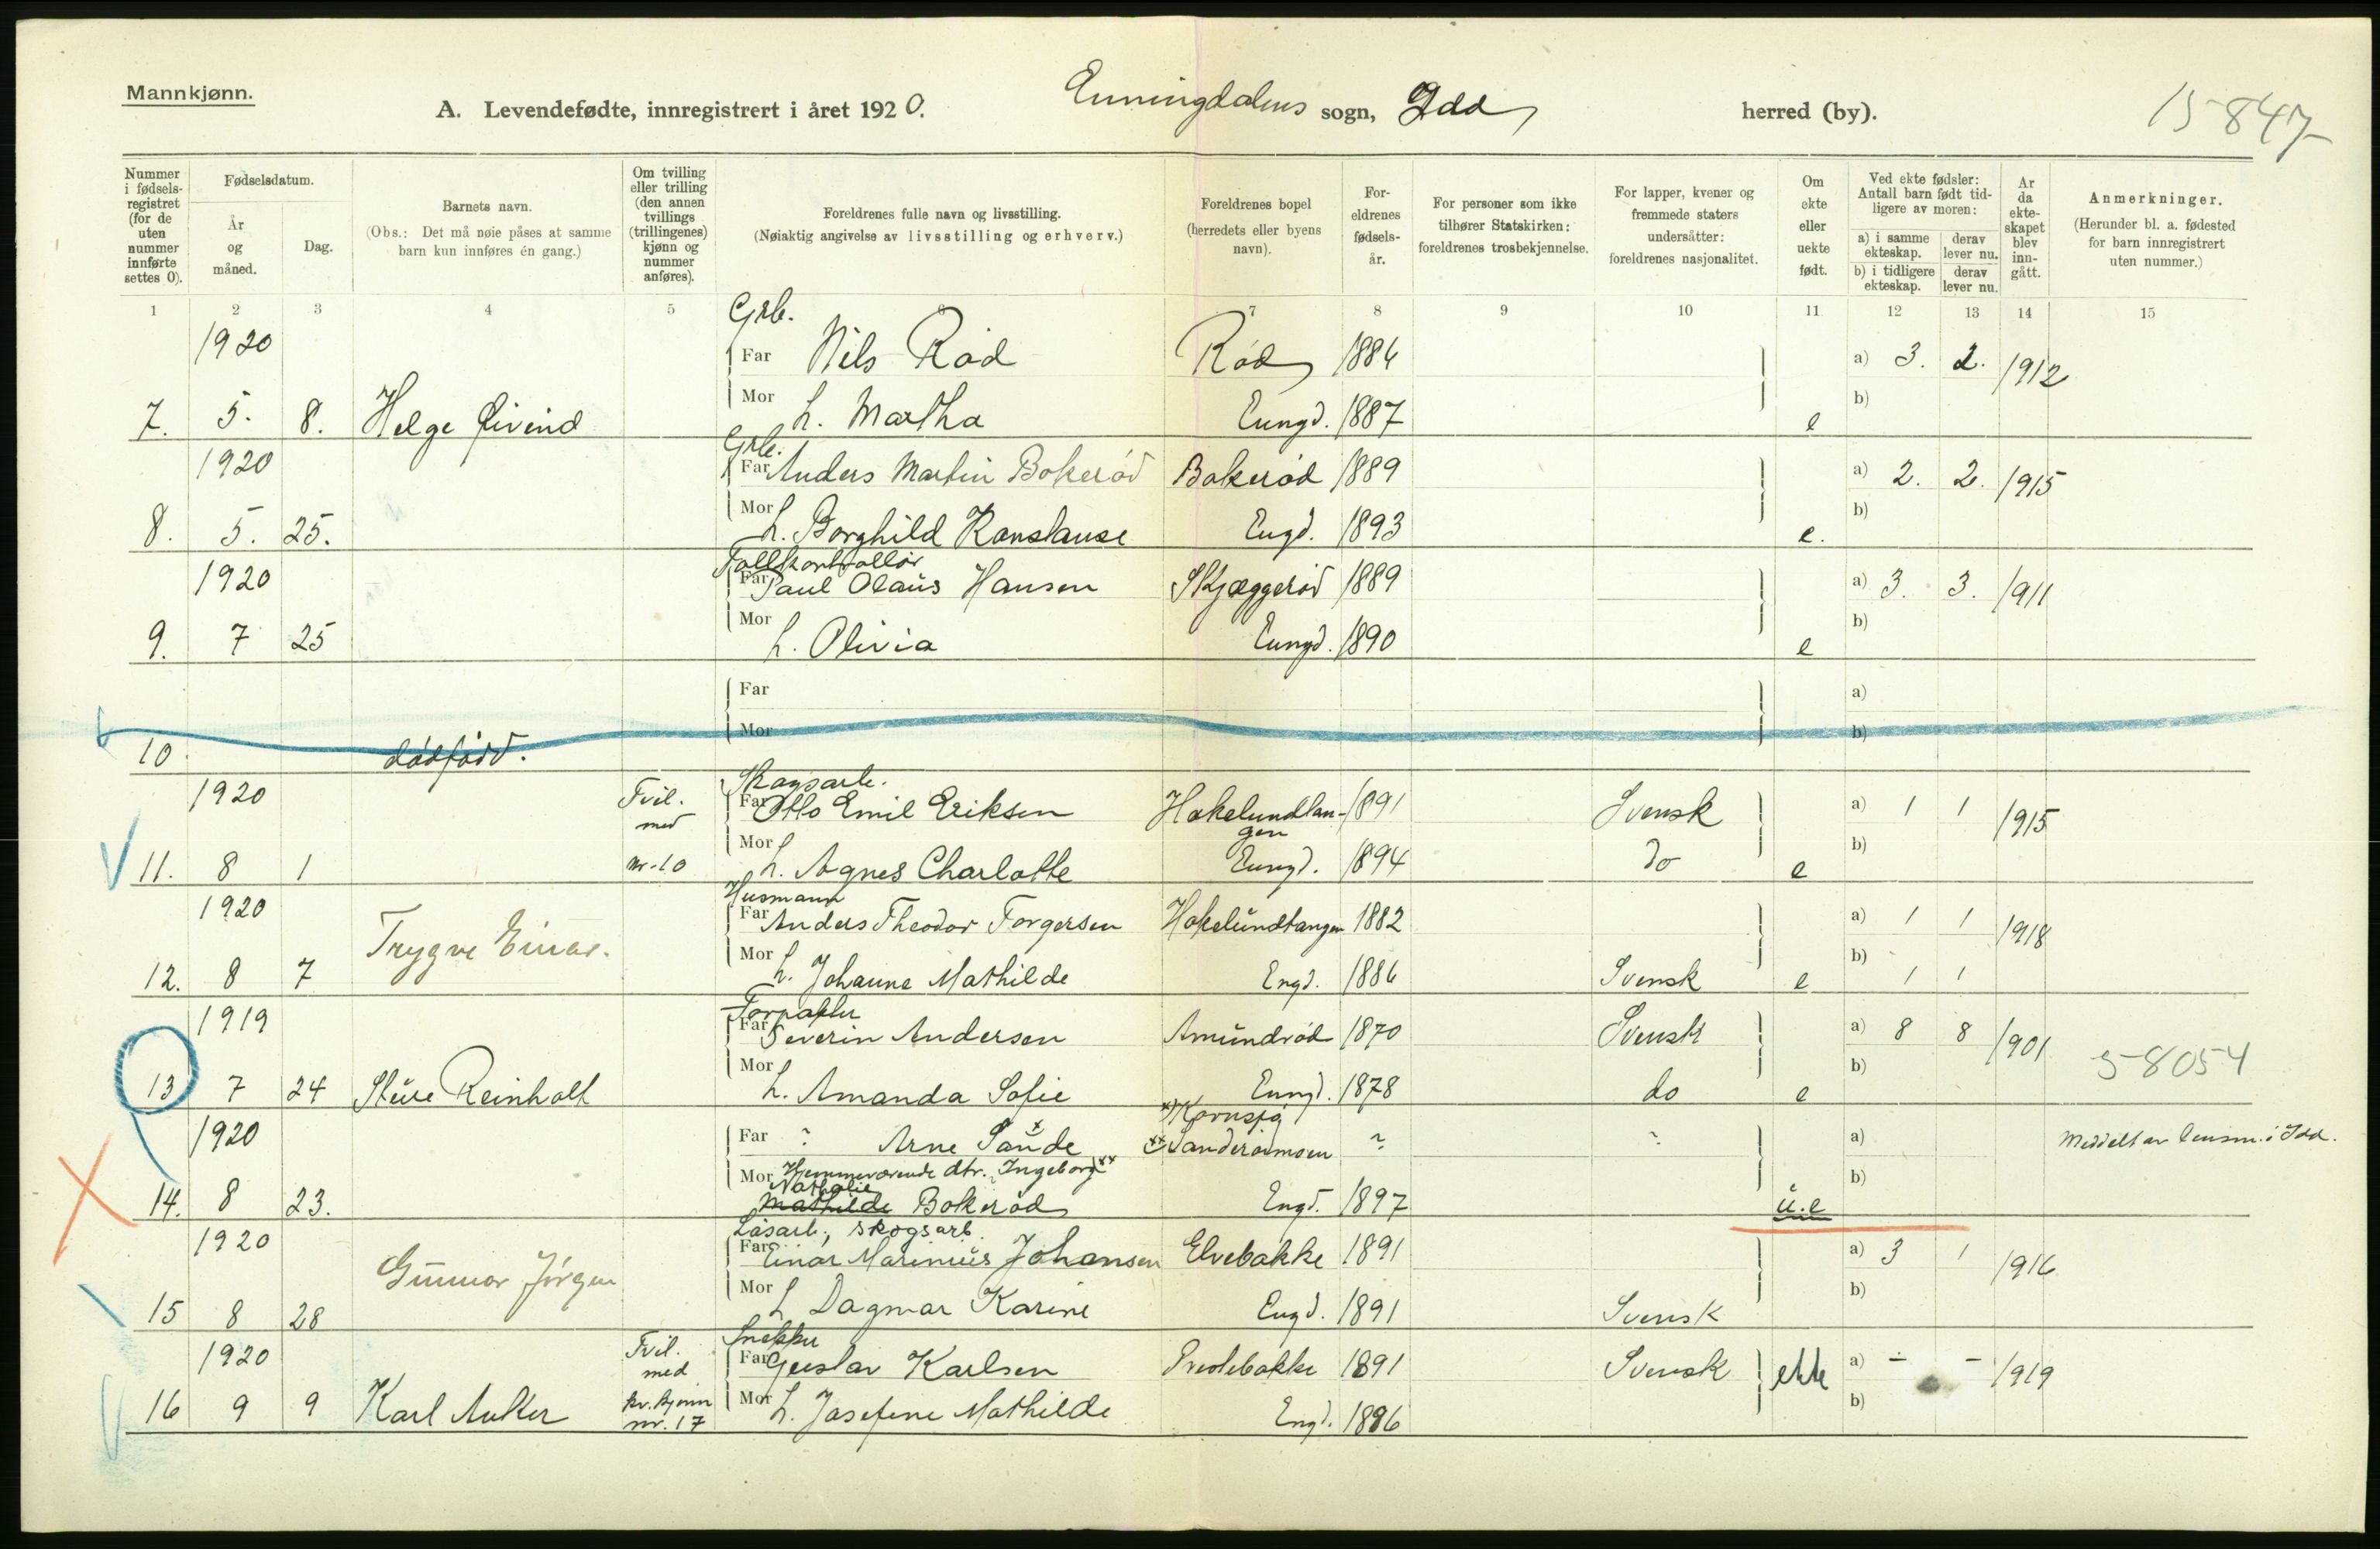 Mannkjønn.
A. Levendefødte, innregistrert i året 1920. Enningdalens sogn, Idd herred (by).
15847
Nummer i fødsels-registret (for de uten nummer innførte settes 0).
Fødselsdatum.
År og måned.
Dag.
Barnets navn.
(Obs.: Det må nøie påses at samme barn kun innføres én gang.)
Om tvilling eller trilling (den annen tvillings (trillingenes) kjønn og nummer anføres).
Foreldrenes fulle navn og livsstilling.
(Nøiaktig angivelse av livsstilling og erhverv.)
Foreldrenes bopel (herredets eller byens navn).
For-eldrenes fødsels-år.
For personer som ikke tilhører Statskirken: foreldrenes trosbekjennelse.
For lapper, kvener og fremmede staters undersåtter: foreldrenes nasjonalitet.
Om ekte eller uekte født.
Ved ekte fødsler: Antall barn født tid-ligere av moren:
a) i samme ekteskap. derav lever nu.
b) i tidligere ekteskap. derav lever nu.
År da ekte-skapet blev inn-gått.
Anmerkninger.
(Herunder bl. a. fødested for barn innregistrert uten nummer.)
1 2 3 4 5 6 7 8 9 10 11 12 13 14 15
Grb.
1920 Far Nils Rød Rød 1884 a) 3. 2. 1912
7. 5. 8. Helge Øivind Mor h. Martha Enngd. 1887 e b)
Grb.
1920 Far Anders Martin Bokerød Bokerød 1889 a) 2. 2. 1915
8. 5. 25. Mor h. Borghild Konstanse Engd. 1893 e. b)
Tollkontrollør
1920 Far Paul Olaus Hansen Skjæggerød 1889 a) 3. 3. 1911
9. 7 25 Mor h. Olivia Enngd. 1890 e b)
Far a)
10. dødfødt. Mor b)
Skogsarb.
1920 Tvil. med Far Otto Emil Eriksen Hokelundtan- 1891 Svensk a) 1 1 1915
gen
11. 8 1 nr. 10 Mor h. Agnes Charlotte Enngd. 1894 do e b)
Husmann
1920 Far Anders Theodor Torgersen Hokelundtangen 1882 a) 1 1 1918
12. 8 7 Trygve Einar. Mor h. Johanne Mathilde Engd. 1886 Svensk e b) 1 1
Forpakter
1919 Far Severin Andersen Amundrød 1870 Svensk a) 8 8 1901
13 7 24 Sture Reinholt Mor h. Amanda Sofie Enngd. 1878 do e b) 58054
x) Kornsjø
1920 Far ? Arne Sande x xx ? ? a) Meddelt av lensm. i Idd.
Mor Hjemmeværende dtr. Ingeborg xx
Nathalie
14. 8 23. Mathilde Bokerød Engd. 1897 u.e b)
Løsarb., skogsarb.
1920 Far Einar Marenius Johansen Elvebakke 1891 a) 3 1 1916
15 8 28 Gunnar Jørgen Mor h Dagmar Karine Engd. 1891 Svensk b)
Snekker
1920 Tvil. med Far Gustav Karlsen Prestebakke 1891 Svensk ekte a) - - 1919
16 9 9 Karl Anker kv. kjønn nr. 17 Mor h. Josefine Mathilde Engd. 1896 b)